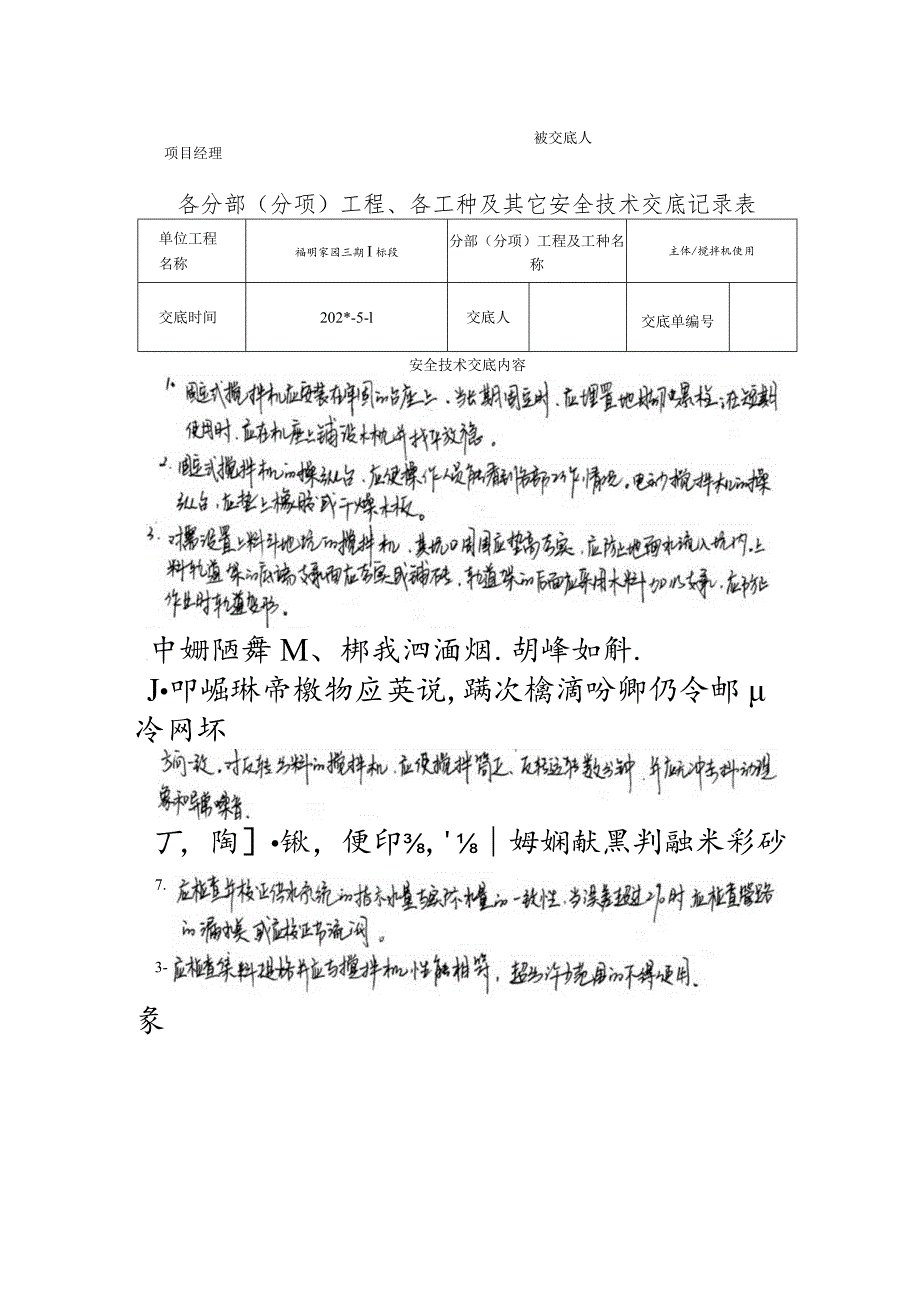 被交底人
项目经理
各分部（分项）工程、各工种及其它安全技术交底记录表
单位工程名称 福明家园三期I标段 分部（分项）工程及工种名称 主体/搅拌机使用
交底时间 202*-5-l 交底人 交底单编号
安全技术交底内容
1. 固定式搅拌机应安装在牢固的台座上，当长期固定时，应埋置地脚螺栓；在短期
使用时，应在机座上铺设木机并找平放稳。
2. 固定式搅拌机的操纵台，应使操作人员能看到各部工作情况，电动搅拌机的操
纵台，应垫上橡胶或干燥木板。
3. 对需设置上料斗地坑的搅拌机，其坑口周围应垫高夯实，应防止地面水流入坑内，上
料轨道架的底端支承面应夯实或铺砖，轨道架的后面应采用木料加以支承，应防止
作业时轨道变形。
中姗陋舞M、梆我泗湎烟.胡峰如斛.
J•叩崛琳帝檄物应英说,蹒次檎滴吩卿仍令邮μ
冷网坏
方向一致，对反转出料的搅拌机，应使搅拌筒正、反转运转数分钟，并应无冲击抖动现
象和异常噪音.
丁，陶］•锹，便印⅜,'⅛｜姆娴献黑判融米彩砂
7. 应检查并校正供水系统的指示水量与实际水量的一致性，当误差超过2%时应检查管路
的漏水 或应校正节流阀。
3- 应检查集料规格并应与搅拌机性能相符，超出许可范围的不得使用.
彖